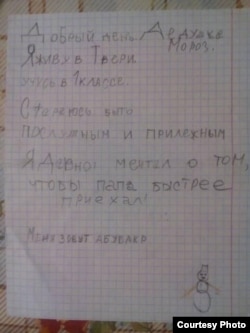 Добрый день. Дедушка
Мороз.
Я живу в Твери
учусь в 1 классе.
Стараюсь быть
послушным и прилежным
Я давно мечтал о том,
чтобы папа быстрее
приехал!
Меня зовут Абубакр
Courtesy Photo